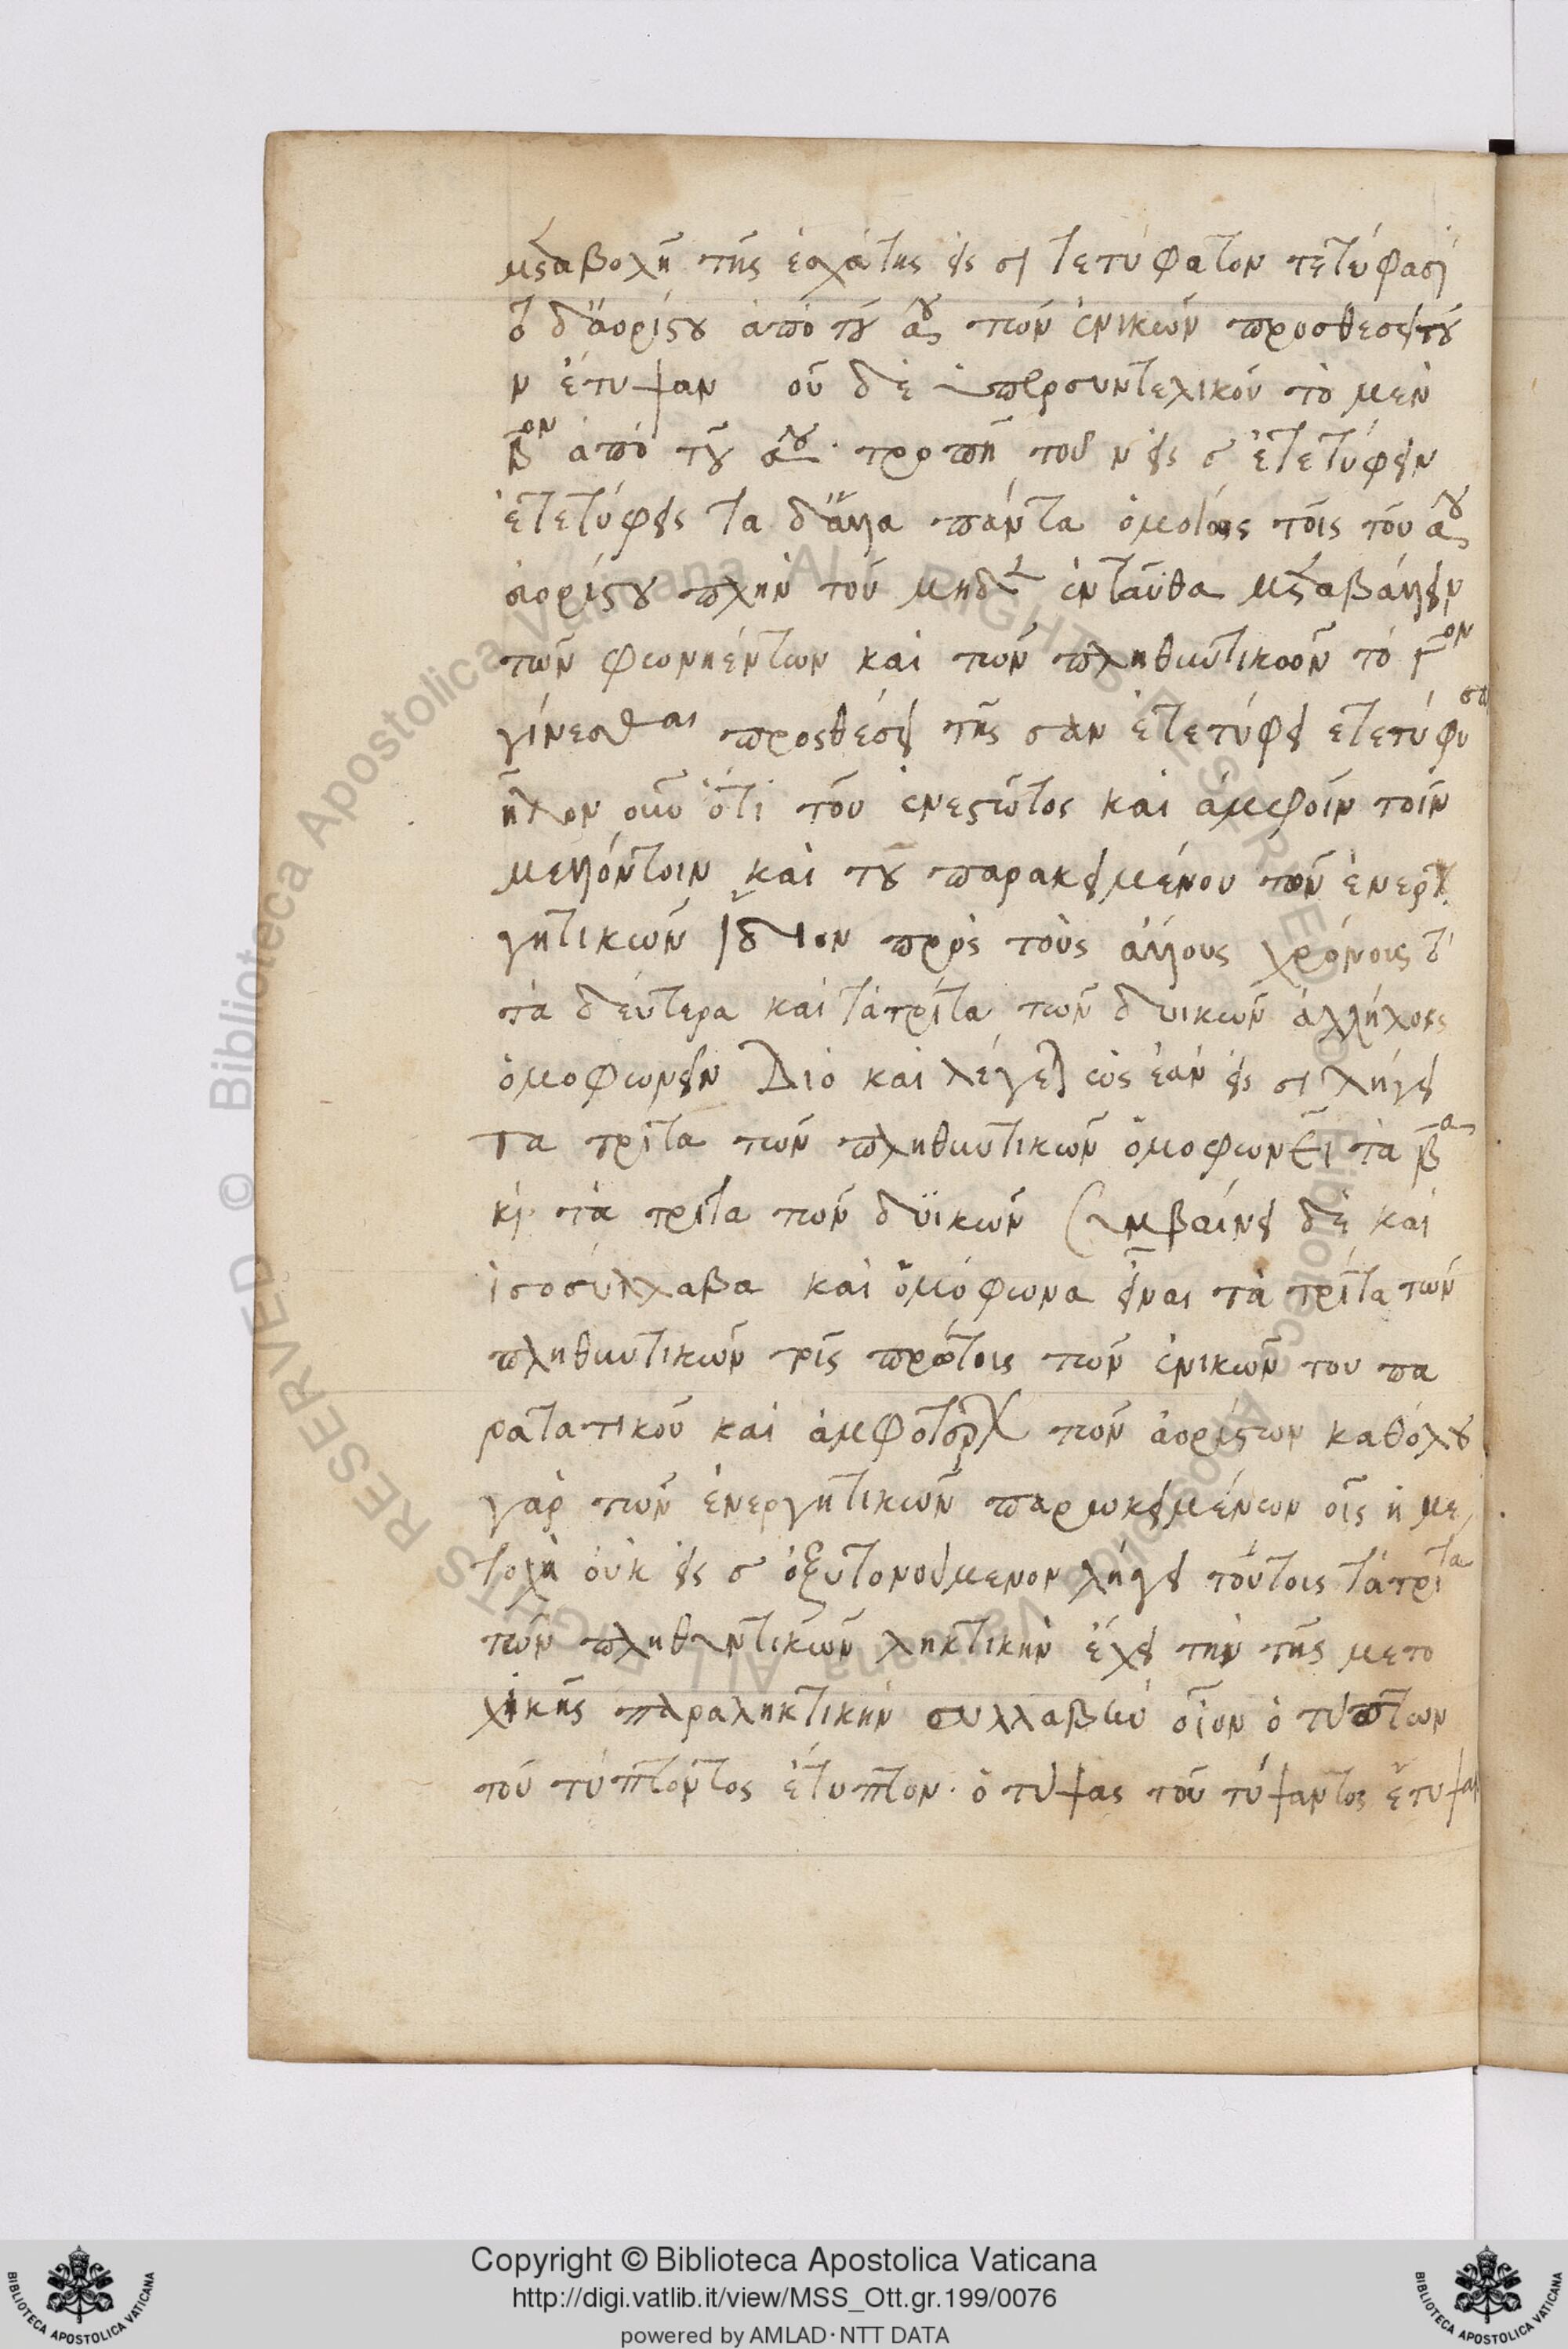 μεταβολῆ τῆς ἐσχάτης εἰς σι τετύφατον τετύφασι
δ' ἀορίστου ἀπὸ τοῦ αου τῶν ἑνικῶν προσθεσει τοῦ
ν ἔτυψαν οὗ δὲ ὑπερσυντελικοῦ τὸ μὲν
βον ἀπὸ τοῦ αου· τροπῆ τοῦ ν εἰς σ ἐτετύφειν
ἐτετύφεις τα δ' ἄλλα πάντα ὁμοίως τοῖς τοῦ αου
ἀορίστου πλὴν τοῦ ἐνταῦθα μεταβάλλειν
τῶν φωνηέντων καὶ τῶν πληθυντικοῶν τὸ γον
γίνεσθαι προσθέσει τῆς σαν ἐτετύφει ετετύφεισα
ῆλον οὖν ὅτι τοῦ ἐνεστῶτος καὶ ἀμφοῖν τοῖν
μελλόντοιν καὶ τοῦ παρακειμένου τῶν ἐνερ
γητικῶν ἴδιον πρὸς τοὺς ἄλλους χρόνους τ
τὰ δεύτερα καὶ τὰ τρίτα τῶν δυικῶν ἀλλήλοις
ὁμοφωνεῖν Διὸ καὶ λέγεται ὡς ἐὰν εἰς σι λήγει
τα τρίτα τῶν πληθυντικῶν ὁμοφωνεῖ τὰ βα
καὶ τὰ τρίτα τῶν δυϊκῶν Συμβαίνει δὲ καὶ
ἰσοσύλλαβα καὶ ὁμόφωνα εἶναι τὰ τρίτα τῶν
πληθυντικῶν τοῖς πρώτοις τῶν ἑνικῶν του πα
ρατατικοῦ καὶ ἀμφοτέρων τῶν ἀορίστων καθόλου
γὰρ τῶν ἐνεργητικῶν παρωκειμένων οἷς ἡ με
τοχὴ οὐκ εἰς σ ὀξυτονούμενον λήγει τούτοις τὰ τρίτα
τῶν πληθυντικῶν ληκτικὴν ἔχει τὴν τῆς μετο
χικῆς παραληκτικὴν συλλαβὴν οἷον ὁ τύπτων
τοῦ τύπτοντος ἔτυπτον· ὁ τύψας τοῦ τύψαντος ἔτυψαν
Copyright © Biblioteca Apostolica Vaticana
http://digi.vatlib.it/view/MSS_Ott.gr.199/0076
powered by AMLAD·NTT DATA